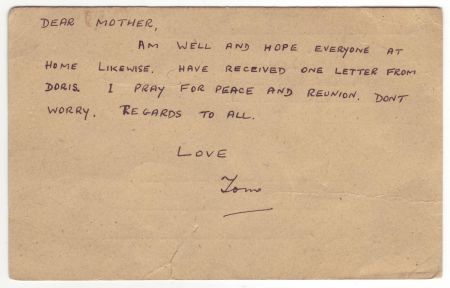 DEAR MOTHER,
AM WELL AND HOPE EVERYONE AT
HOME LIKEWISE. HAVE RECEIVED ONE LETTER FROM
DORIS. I PRAY FOR PEACE AND REUNION. DONT
WORRY. REGARDS TO ALL.
LOVE
Tom